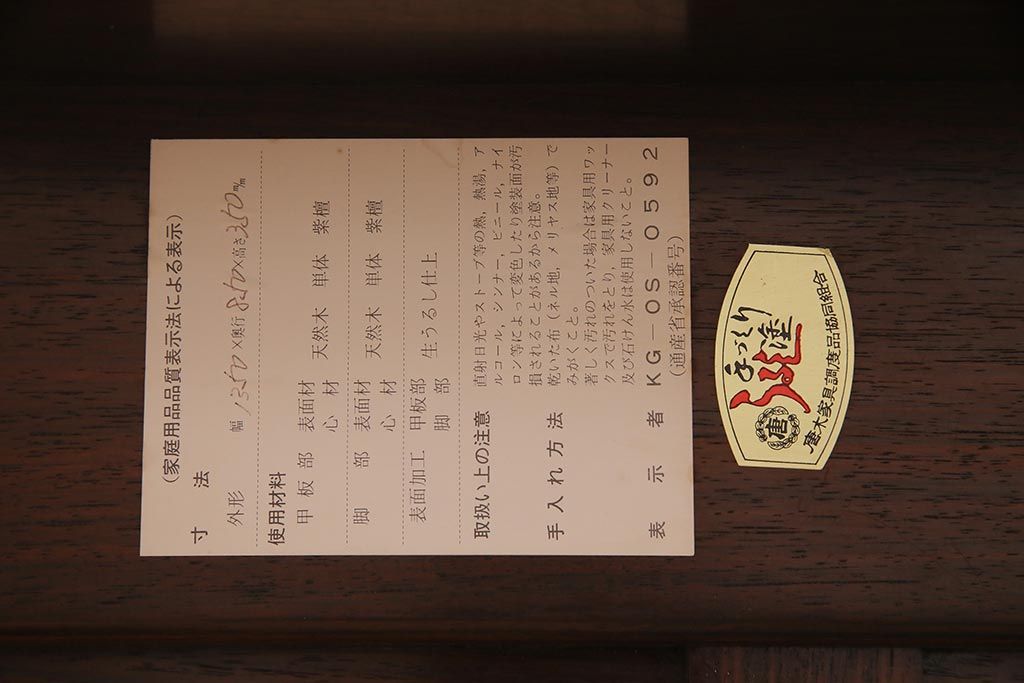 (家庭用品品質表示法による表示)
寸法
外形 幅1350×奥行850×高さ350m/m
使用材料
甲板部 表面材 天然木 単体 紫檀
心材
脚部 表面材 天然木 単体 紫檀
心材
表面加工 甲板部 生うるし仕上
脚部
取扱い上の注意 直射日光やストーブ等の熱,熱湯,ア
ルコール,シンナー,ビニール,ナイ
ロン等によって変色したり塗装面が汚
損されることがあるから注意。
手入れ方法 乾いた布(ネル地,メリヤス地等)で
みがくこと。
著しく汚れのついた場合は家具用ワッ
クスで汚れをとり,家具用クリーナー
及び石けん水は使用しないこと。
表示者 KG-OS-0592
(通産省承認番号)
手づくり
うるし塗
唐
唐木家具調度品協同組合